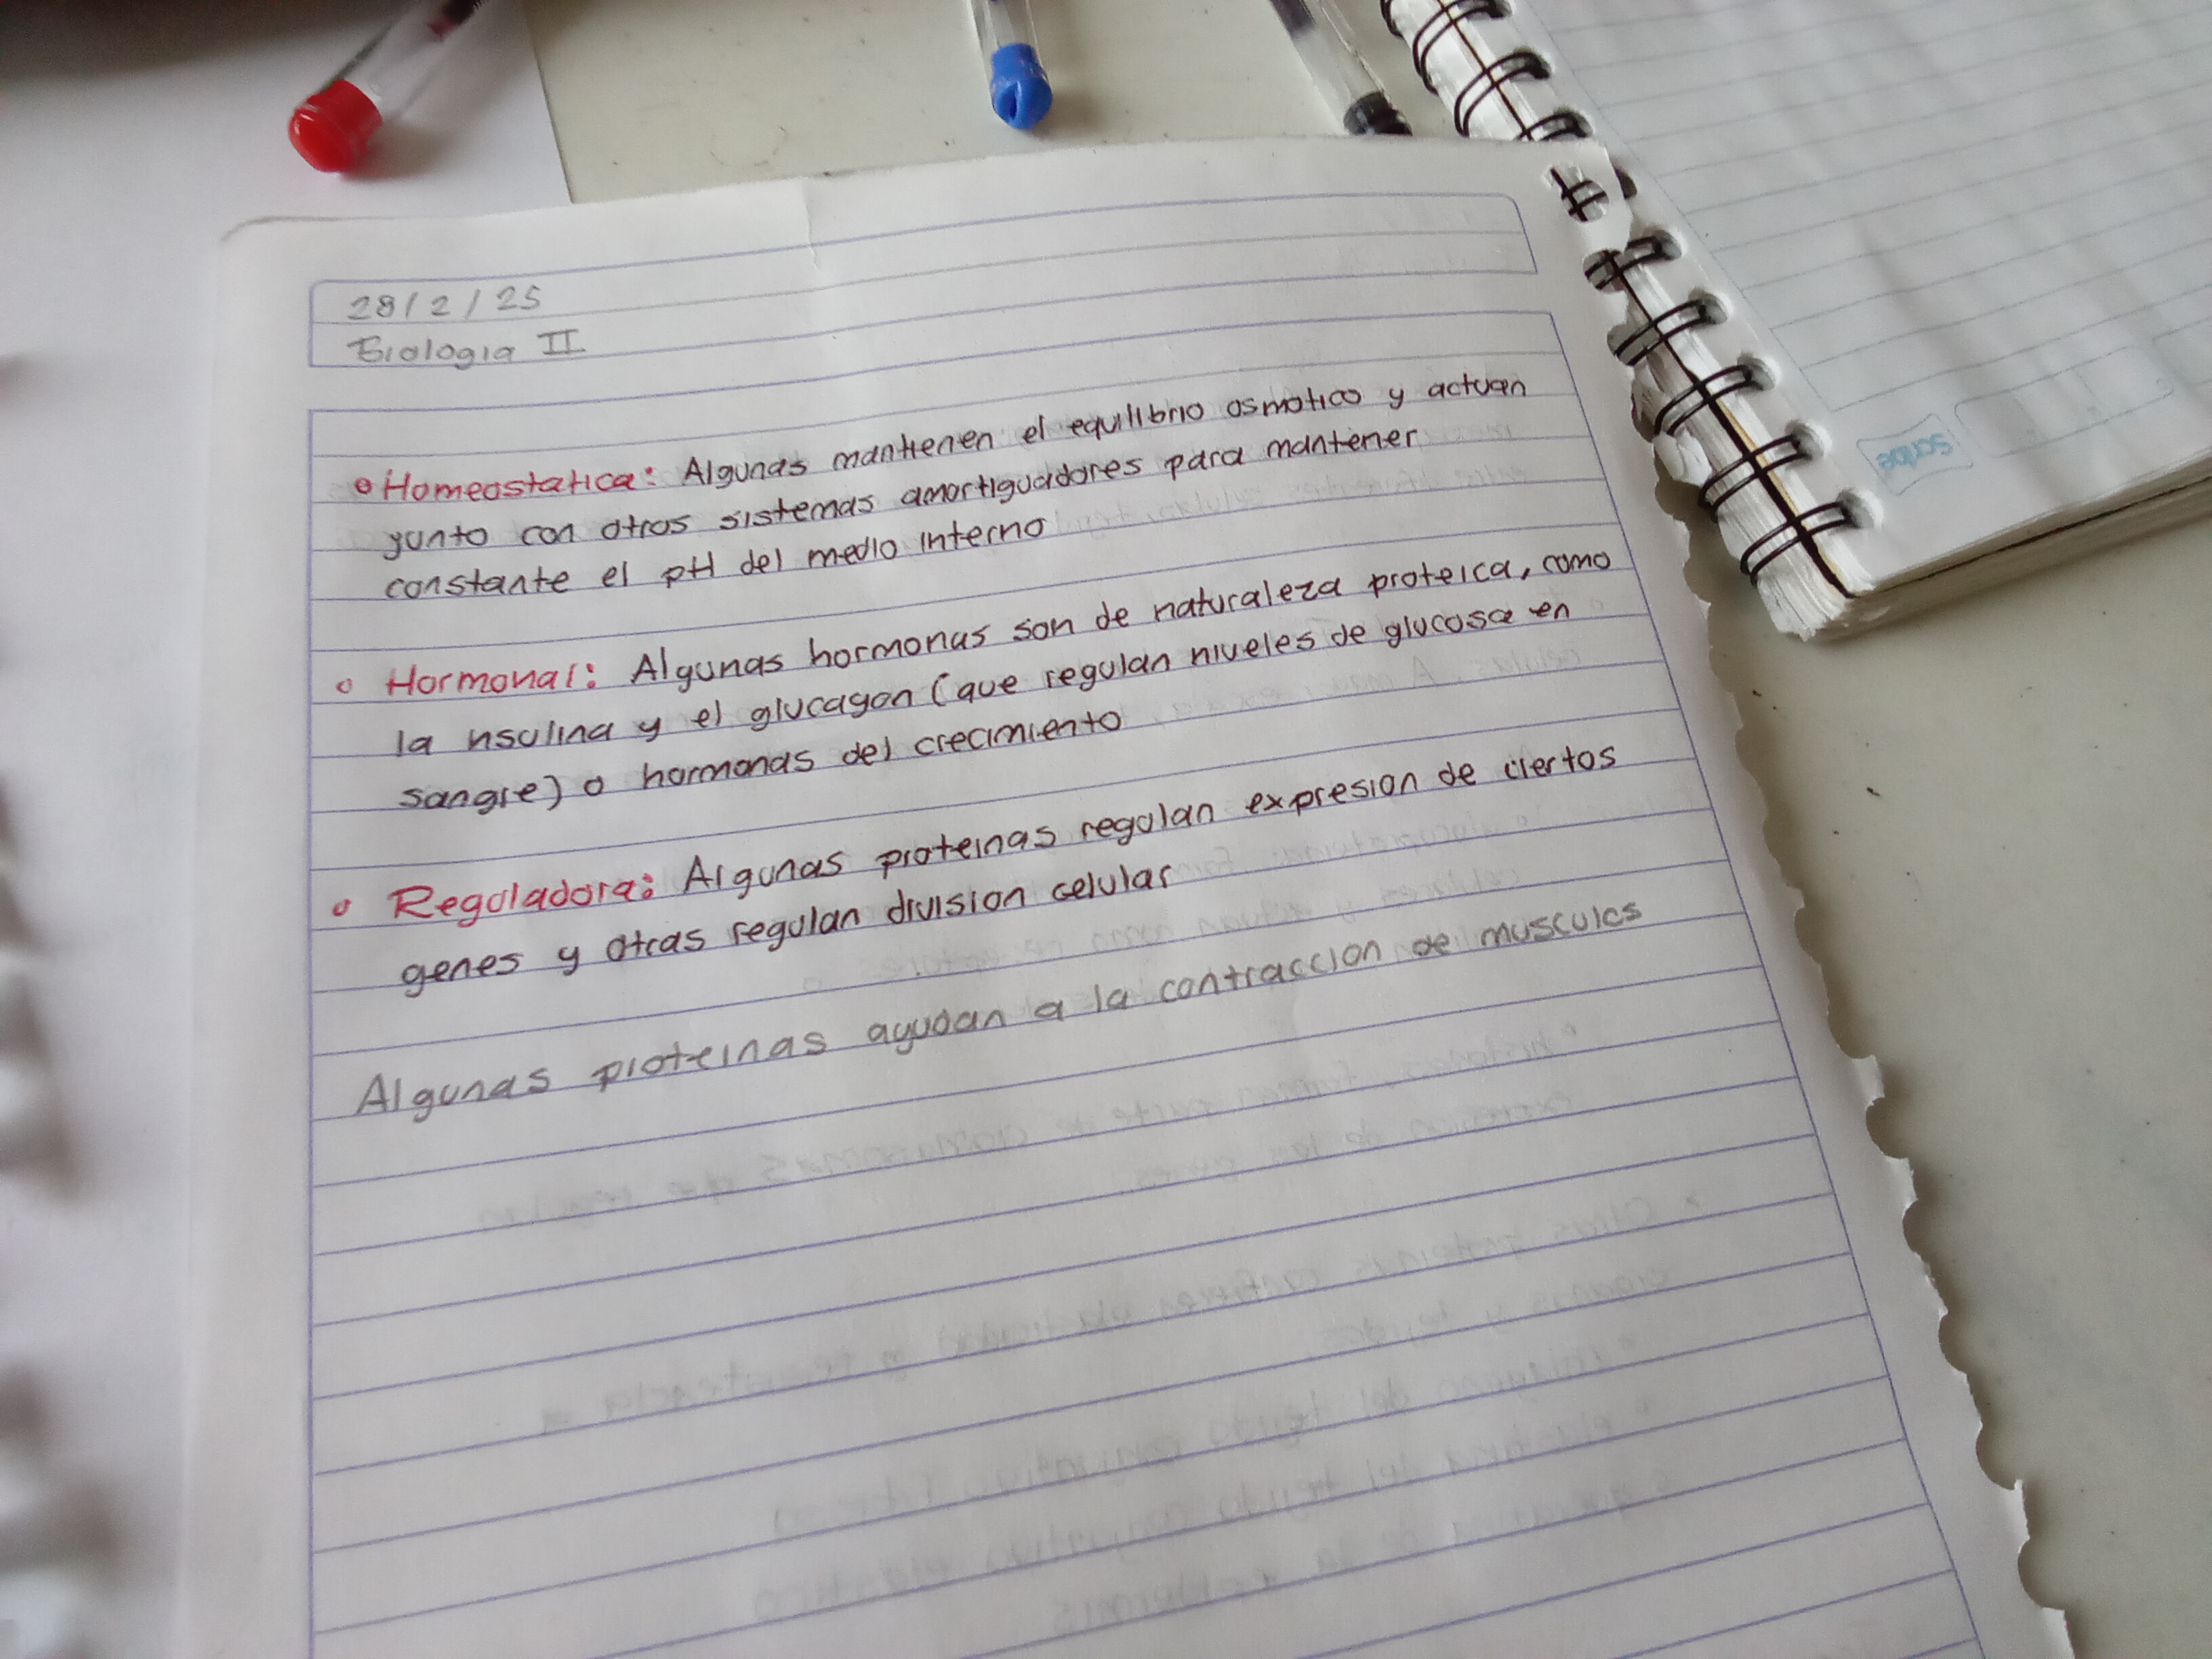 28/2/25
Biologia II
Homeostatica: Algunas mantienen el equilibrio osmotico y actuan
yunto con otros sistemas amortiguadores para mantener
constante el pH del medio interno
Hormonal: Algunas hormonas son de naturaleza proteica, como
la nsulina y el glucagon (que regulan niveles de glucosa en
sangre) o hormonas del crecimiento
Reguladora: Algunas proteinas regulan expresion de ciertos
genes y otras regulan division celular
Algunas proteinas ayudan a la contraccion de musculos
scribe